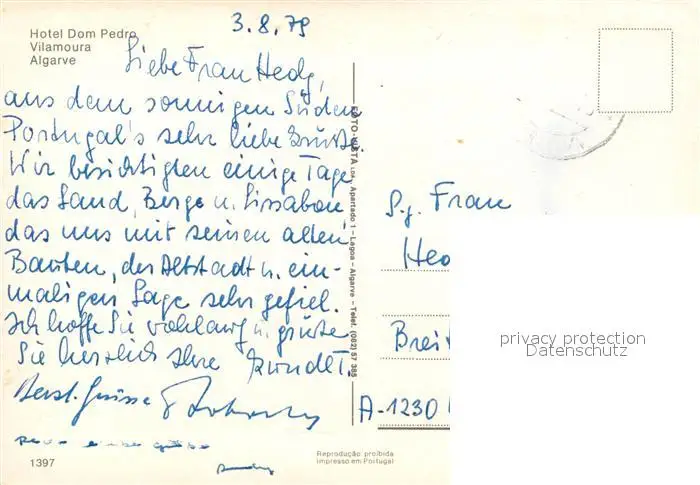 Hotel Dom Pedro
Vilamoura
Algarve
3.8.79
Liebe Frau Hedy,
aus dem sonnigen Süden
Portugal's sehr liebe Grüße.
Wir besichtigten einige Tage
das Land, Berge u. Lissabon
das uns mit seinen alten
Bauten, der Altstadt u. ein-
maligen Lage sehr gefiel.
Ich hoffe Sie wohlauf u. grüße
Sie herzlich Ihre
Herzl. Grüsse
1397
FOTO-VISTA LDA. Apartado 1 - Lagoa - Algarve - Telef. (082) 57 385
S.g. Frau
Hed
Breit
A-1230
privacy protection
Datenschutz
Reprodução proibida
Impresso em Portugal